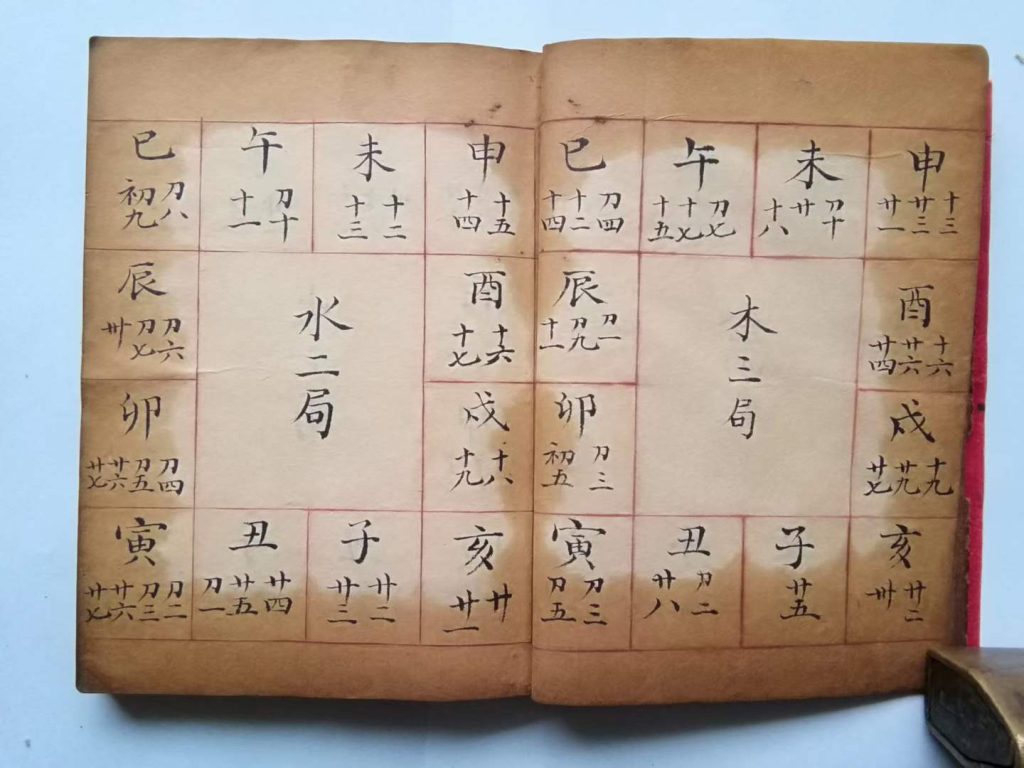 巳
刀八
初九
午
刀十
十一
未
十二
十三
申
十五
十四
辰
刀六
刀七
卅
水二局
酉
十六
十七
卯
刀四
刀五
廿六
廿七
戌
十八
十九
寅
刀二
刀三
廿六
廿七
丑
廿四
廿五
刀一
子
廿二
廿三
亥
廿
廿一
巳
刀四
十二
十四
午
刀七
十七
十五
未
刀十
廿
十八
申
十三
廿三
廿一
辰
刀一
刀九
十一
木三局
酉
十六
廿六
廿四
卯
刀三
初五
戌
十九
廿九
廿七
寅
刀三
刀五
丑
刀二
廿八
子
廿五
亥
廿二
卅